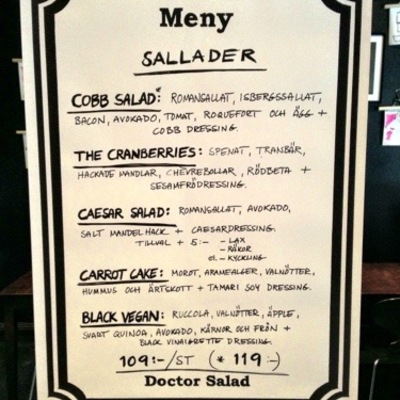 Meny
SALLADER
COBB SALAD*: ROMANSALLAT, ISBERGSSALLAT,
BACON, AVOKADO, TOMAT, ROQUEFORT OCH ÄGG +
COBB DRESSING.
THE CRANBERRIES: SPENAT, TRANBÄR,
HACKADE MANDLAR, CHEVREBOLLAR, RÖDBETA +
SESAMFRÖDRESSING.
CAESAR SALAD: ROMANSALLAT, AVOKADO,
SALT MANDELHACK + CAESARDRESSING.
TILLVAL + 5:- - LAX
- RÄKOR
el. - KYCKLING
CARROT CAKE: MOROT, ARAMEALGER, VALNÖTTER,
HUMMUS OCH ÄRTSKOTT + TAMARI SOY DRESSING.
BLACK VEGAN: RUCCOLA, VALNÖTTER, ÄPPLE,
SVART QUINOA, AVOKADO, KÄRNOR OCH FRÖN +
BLACK VINAIGRETTE DRESSING.
109:-/ST (* 119:-)
Doctor Salad